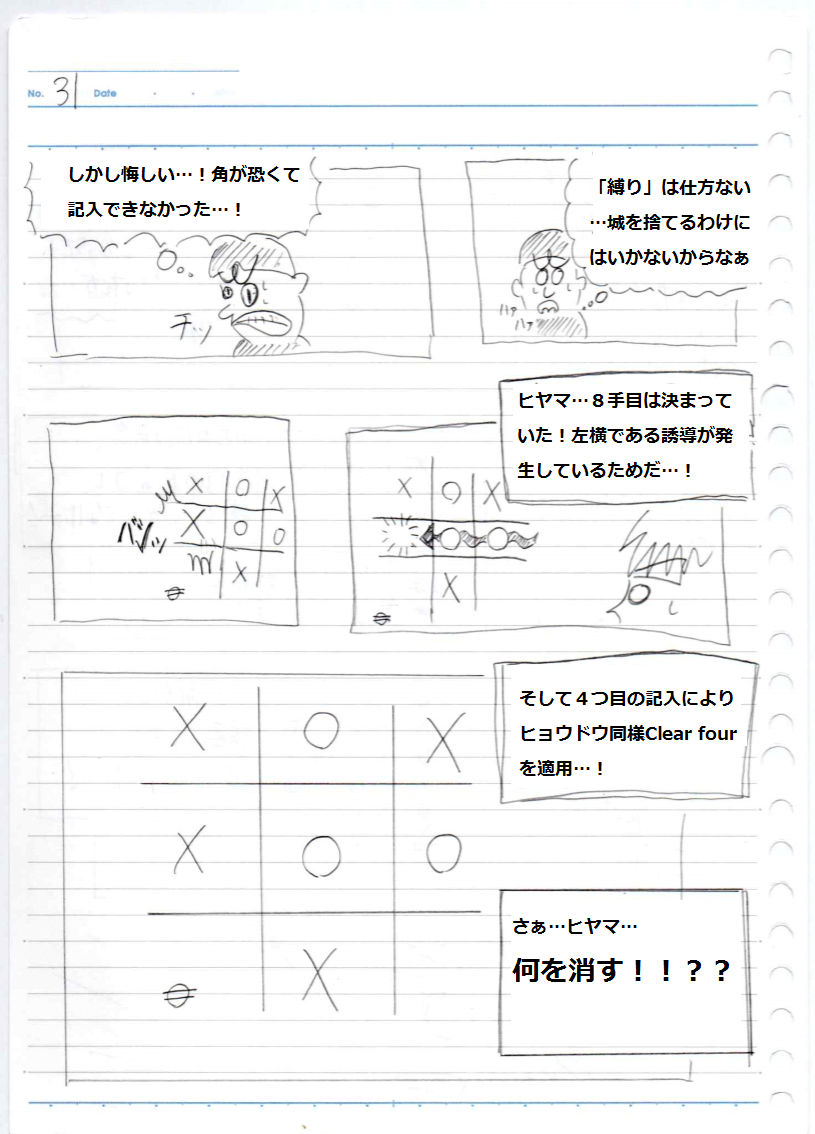 No. 31 Date
しかし悔しい…！角が恐くて
記入できなかった…！
チッ
「縛り」は仕方ない
…城を捨てるわけに
はいかないからなぁ
ハァ
ハァ
ヒヤマ…８手目は決まって
いた！左横である誘導が発
生しているためだ…！
X O X
X O O
X
X O X
O O
X
そして４つ目の記入により
ヒョウドウ同様Clear four
を適用…！
X O X
X O O
X
さぁ…ヒヤマ…
何を消す！！？？